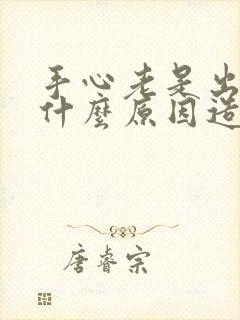 手心老是出
什麼原因造
唐睿宗